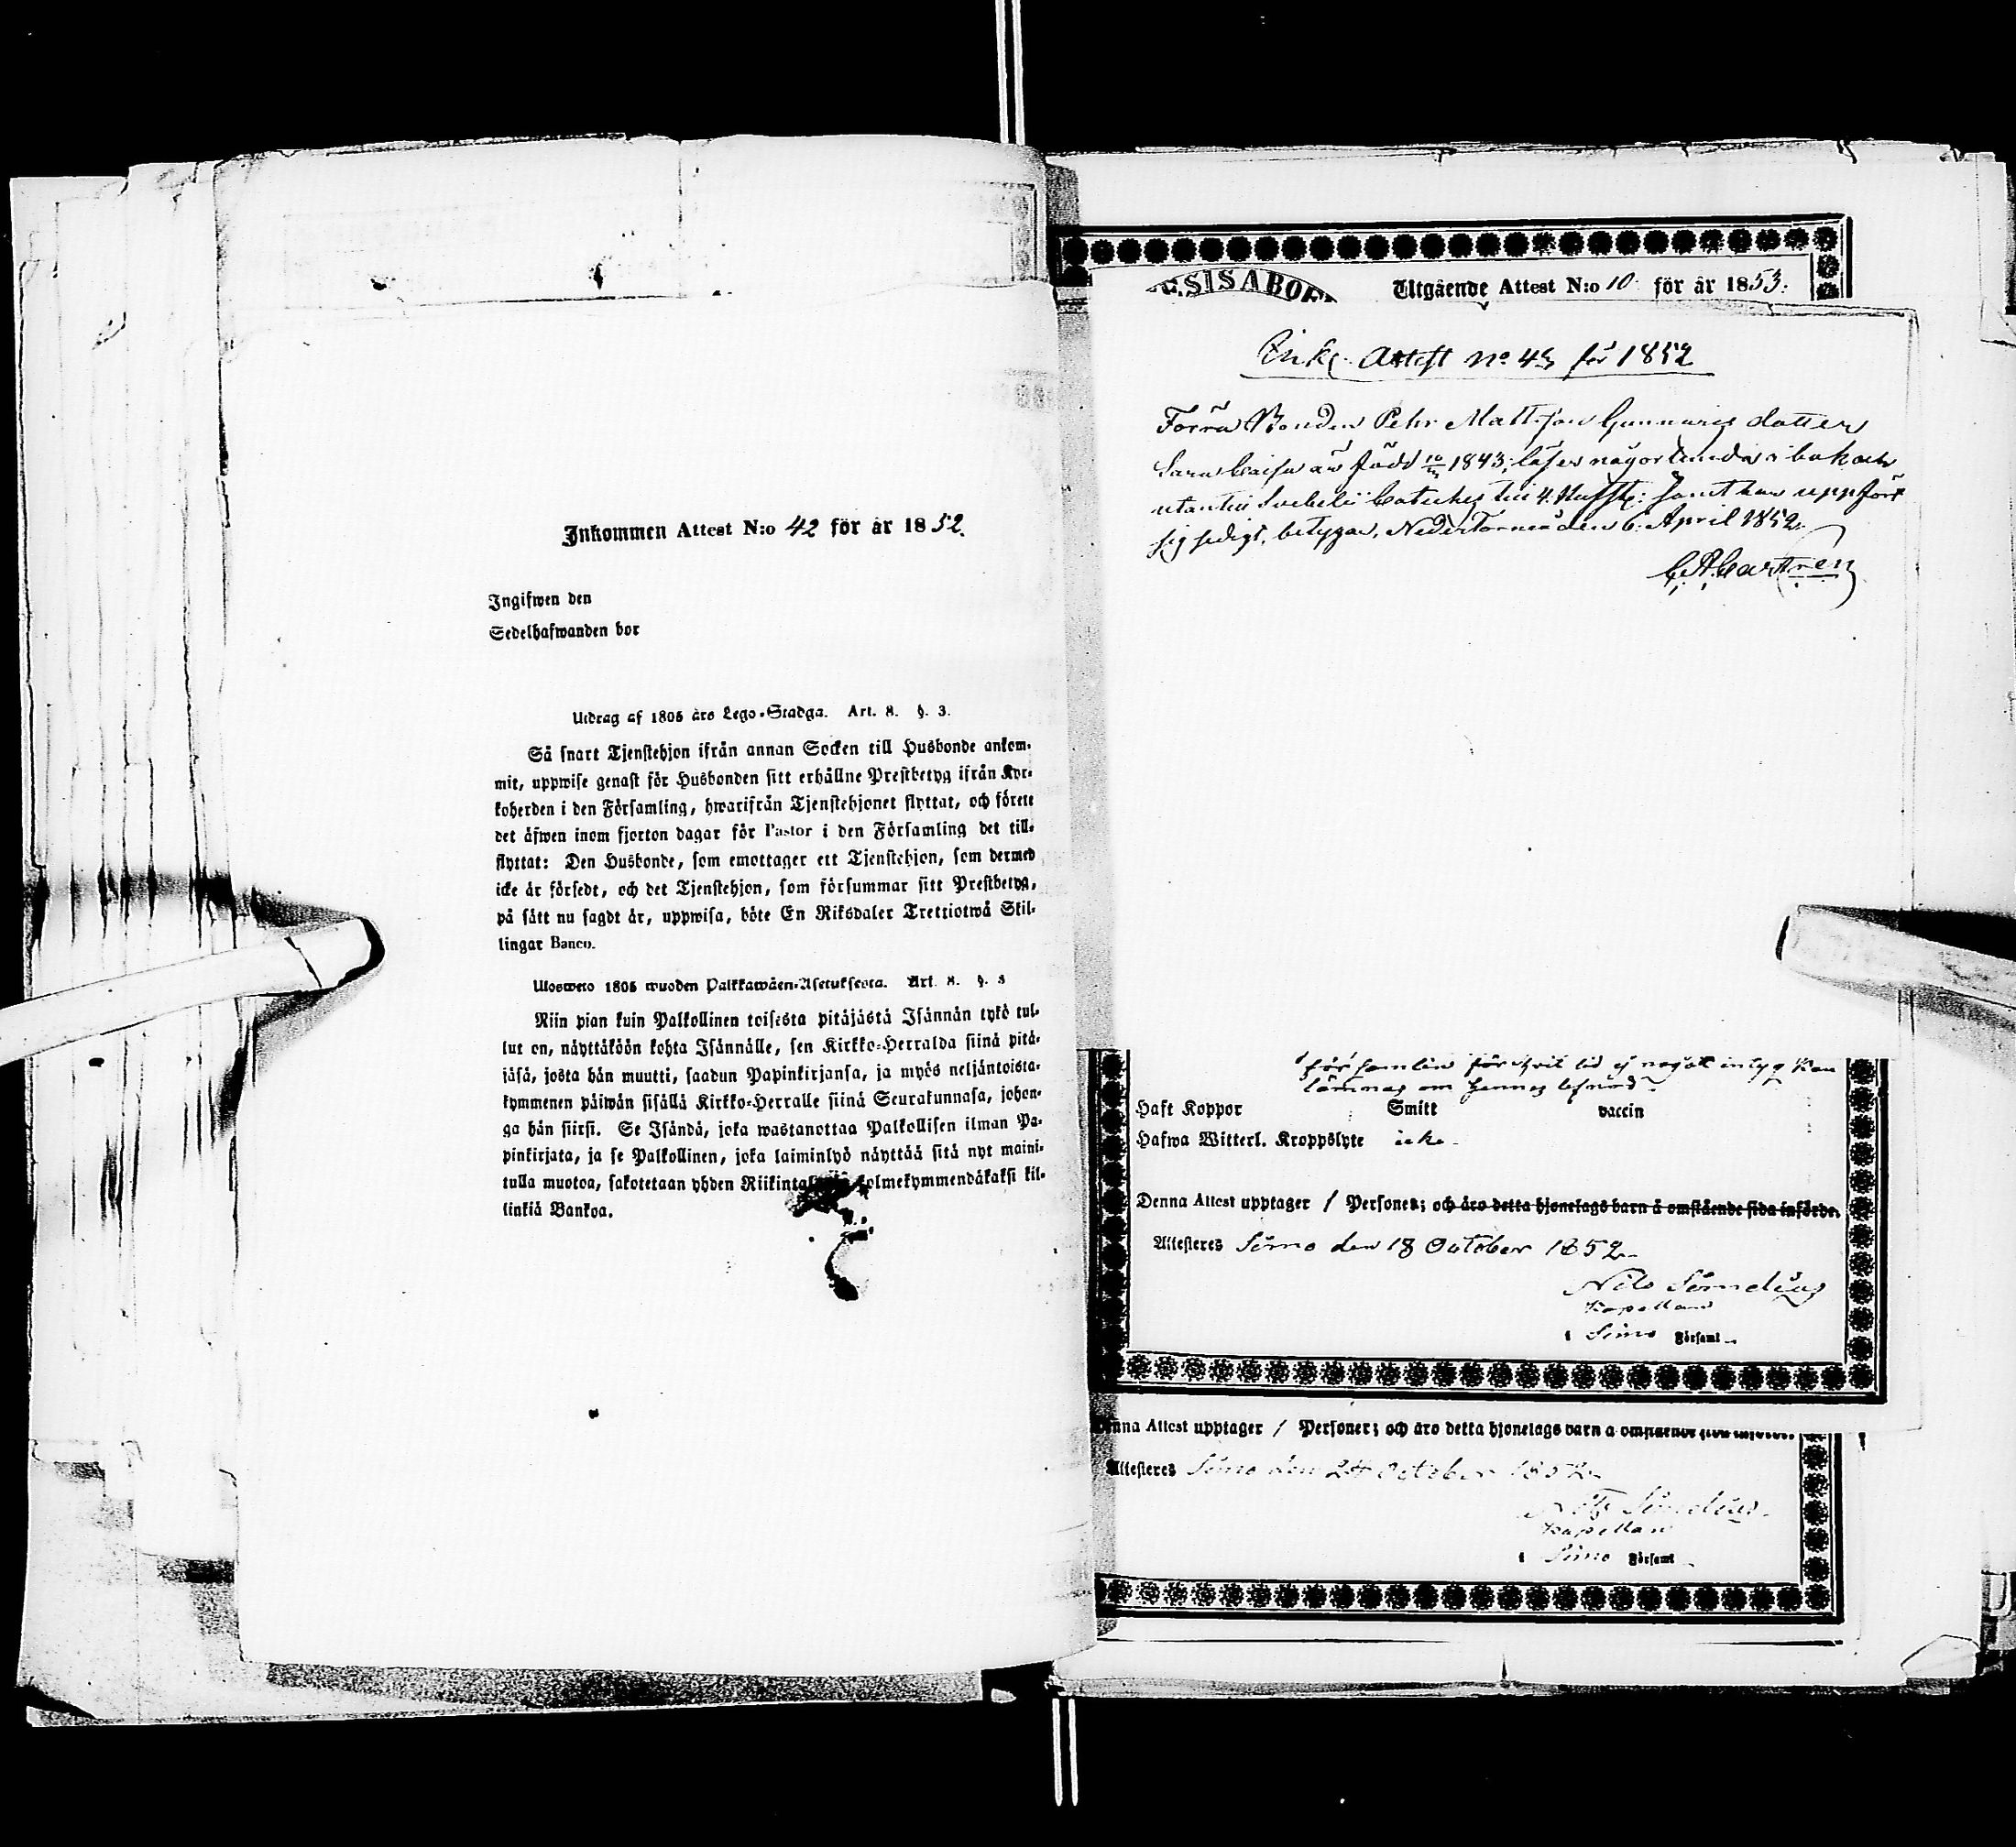 Inkommen Attest N:o 42 för år 1852.
Ingifwen den
Sedelhafwanden bor
Utdrag af 1805 års Lego-Stadga. Art. 8. §. 3.
Så snart Tjenstehjon ifrån annan Socken till Husbonde ankom-
mit, uppwise genast för Husbonden sitt erhållne Prestbetyg ifrån Kyr-
koherden i den Församling, hwarifrån Tjenstehjonet flyttat, och förete
det äfwen inom fjorton dagar för Pastor i den Församling det till-
flyttat: Den Husbonde, som emottager ett Tjenstehjon, som dermed
icke är försedt, och det Tjenstehjon, som försummar sitt Prestbetyg,
på sätt nu sagdt är, uppwisa, böte En Riksdaler Trettiotwå Skil-
lingar Banco.
Ulosweto 1805 wuoden Palkkawäen-Asetuksesta. Art. 8. §. 3
Niin pian kuin Palkollinen toisesta pitäjästä Isännän tykö tul-
lut on, näyttäköön kohta Isännälle, sen Kirkko-Herralda siinä pitä-
jäsä, josta hän muutti, saadun Papinkirjansa, ja myös neljäntoista-
kymmenen päiwän sisällä Kirkko-Herralle siinä Seurakunnasa, johon-
ga hän siirsi. Se Isändä, joka wastanottaa Palkollisen ilman Pa-
pinkirjata, ja se Palkollinen, joka laiminlyö näyttää sitä nyt maini-
tulla muotoa, sakotetaan yhden kolmekymmendäkaksi kil-
linkiä Bankoa.
SISABOR
Utgående Attest N:o 10 för år 1853.
Attest No 43 för 1852
Förra Bonden Pehr Mattsson Gunnaris dotter
Sara Caisa är född 1843; läser någorlunda i bok och
utantill Svebelii Cateches till 4. samt har uppfört
sig sedigt, betygar, NederTorneå den 6. April 1852.
Castrén
församlin för hvil tid ej något intyg kan
lämnas om hennes
Haft Koppor Smitt vaccin
Hafwa Witterl. Kroppslyte icke.
Denna Attest upptager 1 Personer; och äro detta hjonelags barn å omstående sida införde.
Attesteres Simo den 18 October 1852.
Nils Simelius
Kapellan
i Simo Församl.
Denna Attest upptager 1 Personer; och äro detta hjonelags barn å omstående sida införde.
Attesteres Simo den 24 October 1852.
Nils Simelius.
Kapellan
i Simo Församl.